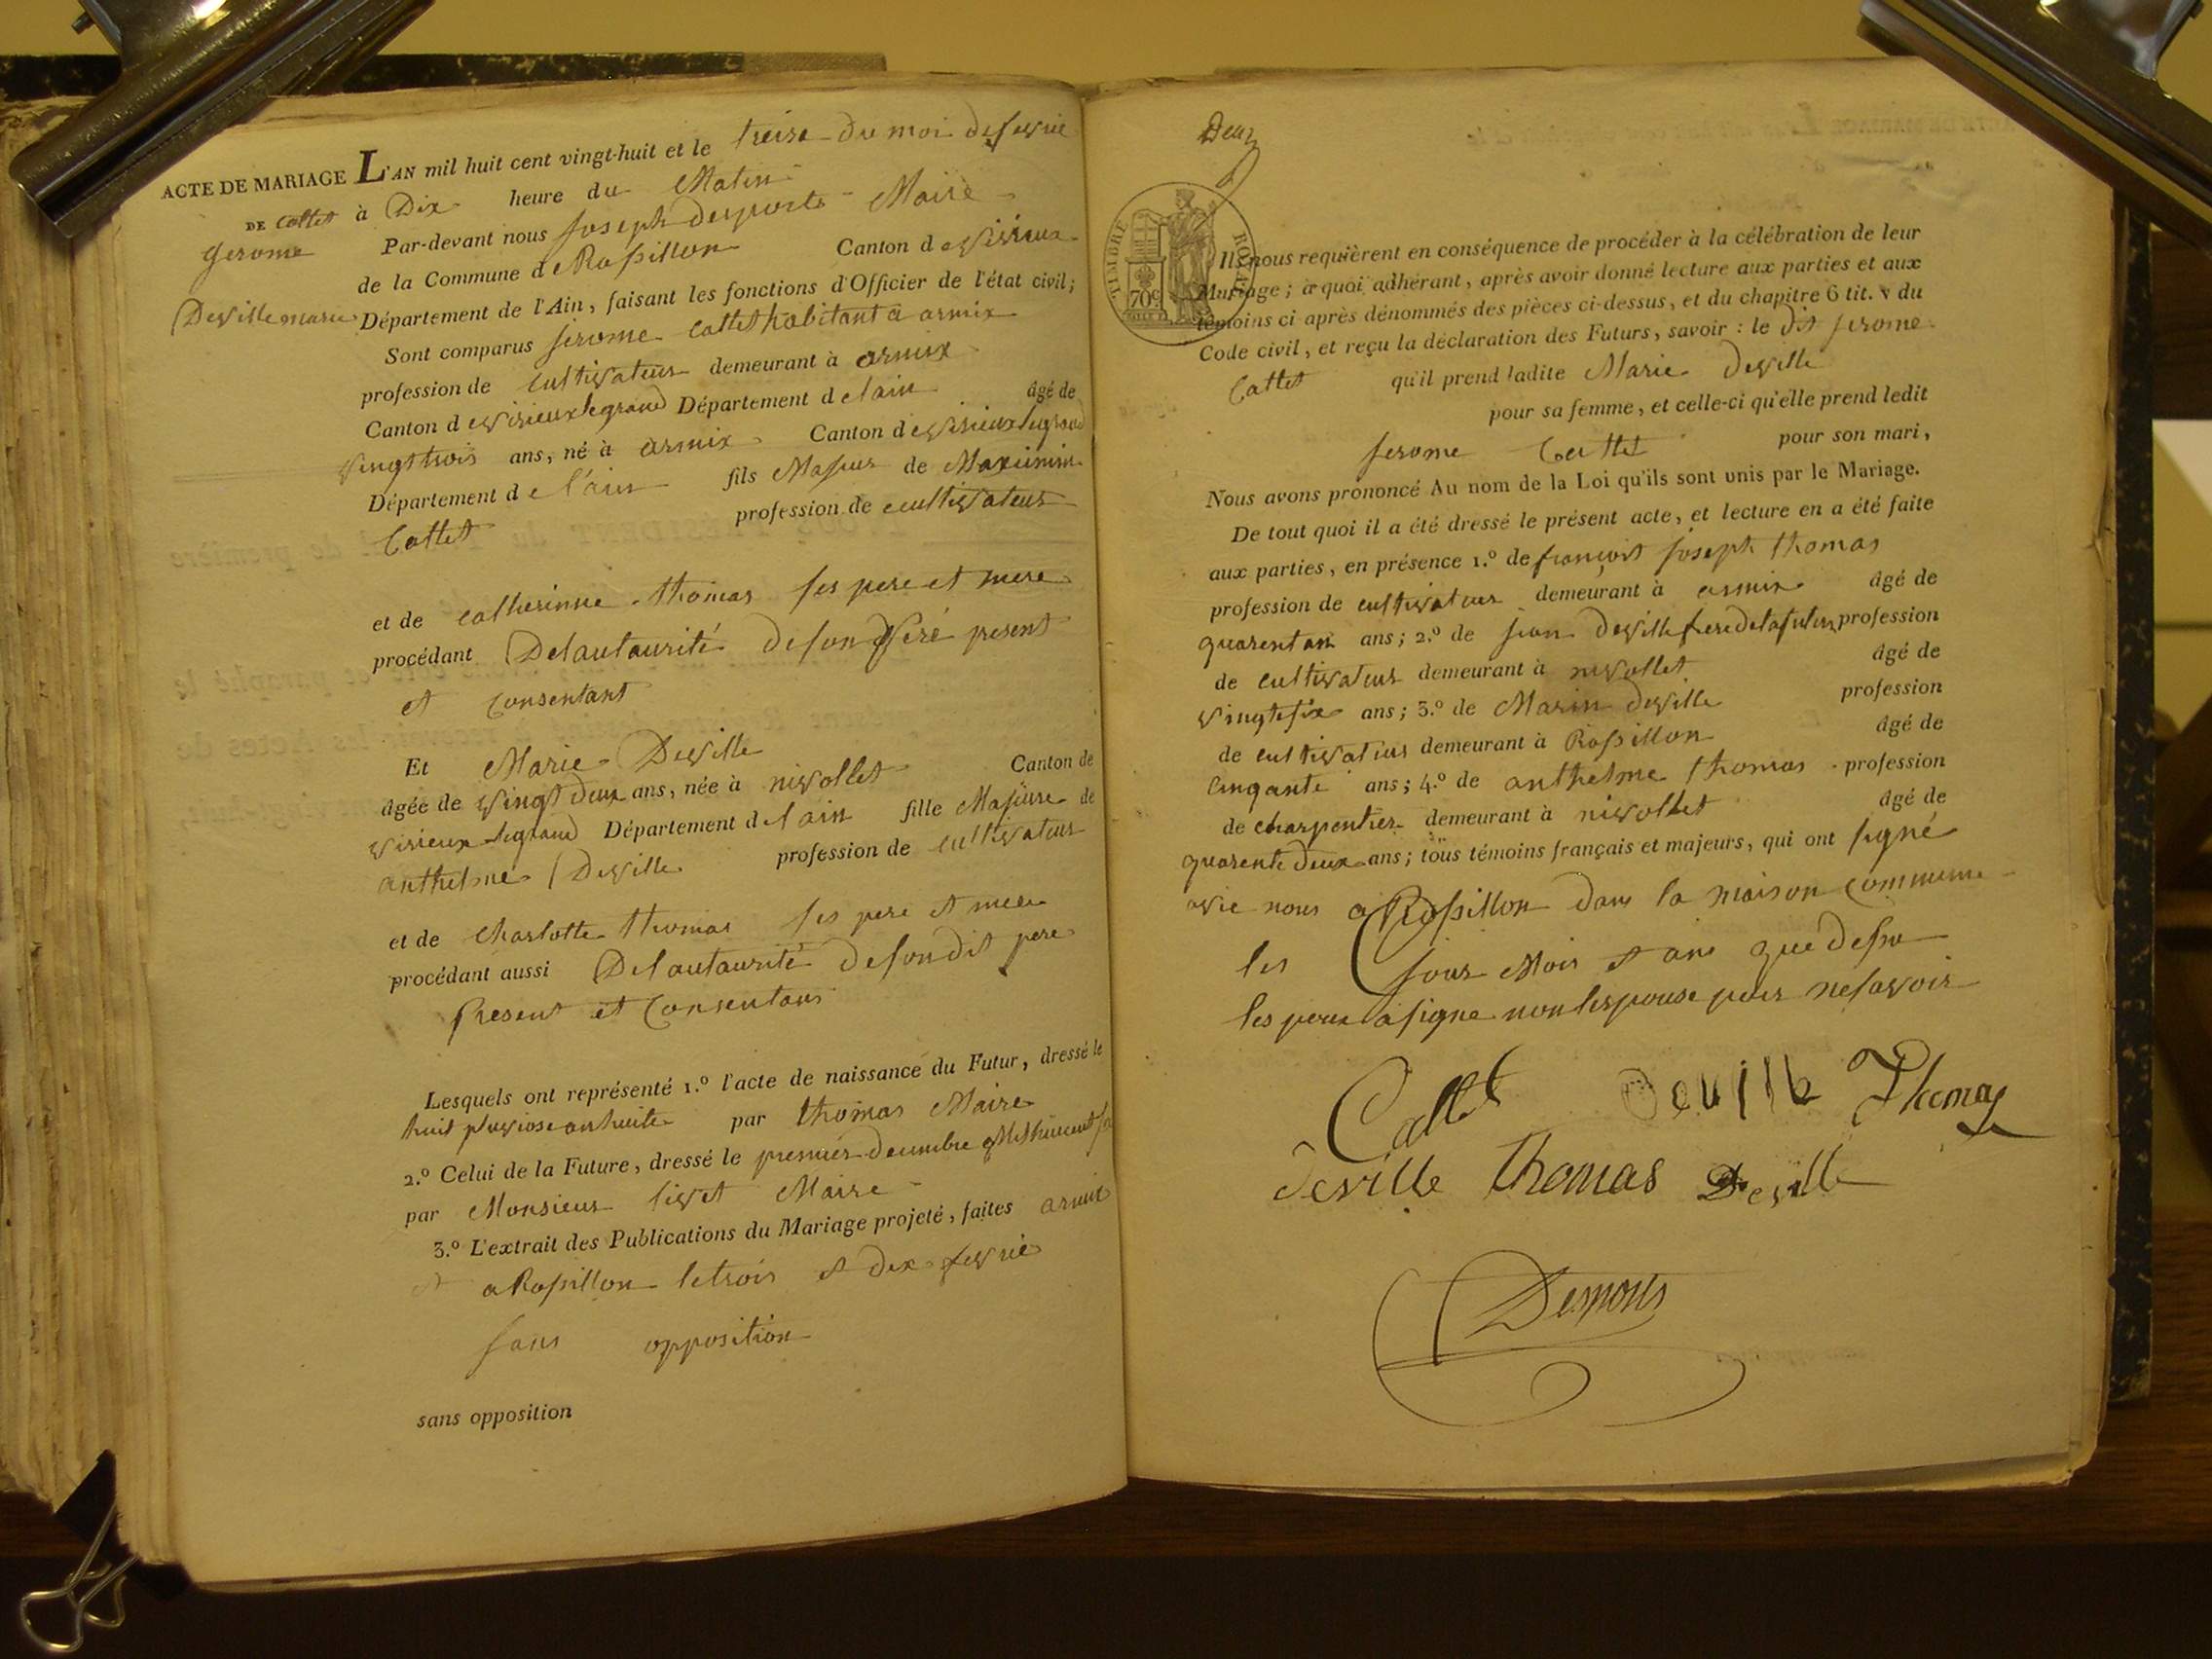 ACTE DE MARIAGE L'AN mil huit cent vingt-huit et le treise du moi de fevrie
DE Cattet à Dix heure du Matin
gerome Par-devant nous joseph desports Maire
de la Commune de Rossillon Canton de virieux
Deville marie Département de l'Ain, faisant les fonctions d'Officier de l'état civil;
Sont comparus jerome Cattet habitant a armix
profession de cultivateur demeurant à armix
Canton de virieux legrand Département de lain âgé de
vingt trois ans, né à armix Canton de virieux legrand
Département de l'ain fils Majeur de Maximin
Cattet profession de cultivateur
et de catherinne thomas ses pere et mere
procédant Delautaurité deson Peré present
et Consentant
Et Marie Deville
âgée de vingt deux ans, née à nivollet Canton de
virieux legrand Département de l ain fille Majeure de
anthelme Deville profession de cultivateur
et de charlotte thomas ses pere et mere
procédant aussi Delautaurité desondit pere
Present et Consentans
Lesquels ont représenté 1.º l'acte de naissance du Futur, dressé le
huit pluviose an huite par thomas Maire
2.º Celui de la Future, dressé le premier decembre Mil huit cent
par Monsieur livet Maire
3.º L'extrait des Publications du Mariage projeté, faites armix
et a Rossillon letrois et dix fevrié
sans opposition
sans opposition
Deux
TIMBRE ROYAL
70c
Ils nous requièrent en conséquence de procéder à la célébration de leur
Mariage; à quoi adhérant, après avoir donné lecture aux parties et aux
témoins ci après dénommés des pièces ci-dessus, et du chapitre 6 tit. v du
Code civil, et reçu la déclaration des Futurs, savoir : le dit jerome
Cattet qu'il prend ladite Marie Deville
pour sa femme, et celle-ci qu'elle prend ledit
jerome Cattet pour son mari,
Nous avons prononcé Au nom de la Loi qu'ils sont unis par le Mariage.
De tout quoi il a été dressé le présent acte, et lecture en a été faite
aux parties, en présence 1.º de françois joseph thomas
profession de cultivateur demeurant à armix âgé de
quarentan ans; 2.º de jean deville profession
de cultivateur demeurant à nivollet âgé de
vingtesix ans; 3.º de Marin deville profession
de cultivateur demeurant à Rossillon âgé de
Cinqante ans; 4.º de anthelme thomas profession
de charpentier demeurant à nivollet âgé de
quarente deux ans; tous témoins français et majeurs, qui ont signé
avec nous a Rossillon dans la maison Commune
les jour Mois et ans que desu
les poux a signe non lespouse pour nesavoir
Cattet Deville Thomas
deville thomas Deville
Desports